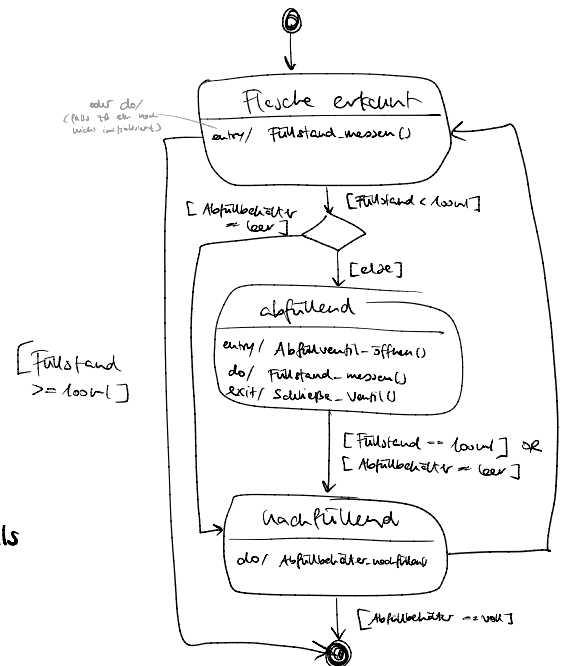 Flasche erkannt
oder do/
(falls
nicht initialisiert)
entry/ Füllstand_messen()
[Füllstand < 100ml]
[Abfüllbehälter
= leer]
[else]
abfüllend
entry/ Abfüllventil_öffnen()
do/ Füllstand_messen()
exit/ Schließe_Ventil()
[Füllstand
>= 100ml]
[Füllstand == 100ml] OR
[Abfüllbehälter = leer]
nachfüllend
ls
do/ Abfüllbehälter_nachfüllen()
[Abfüllbehälter == voll]